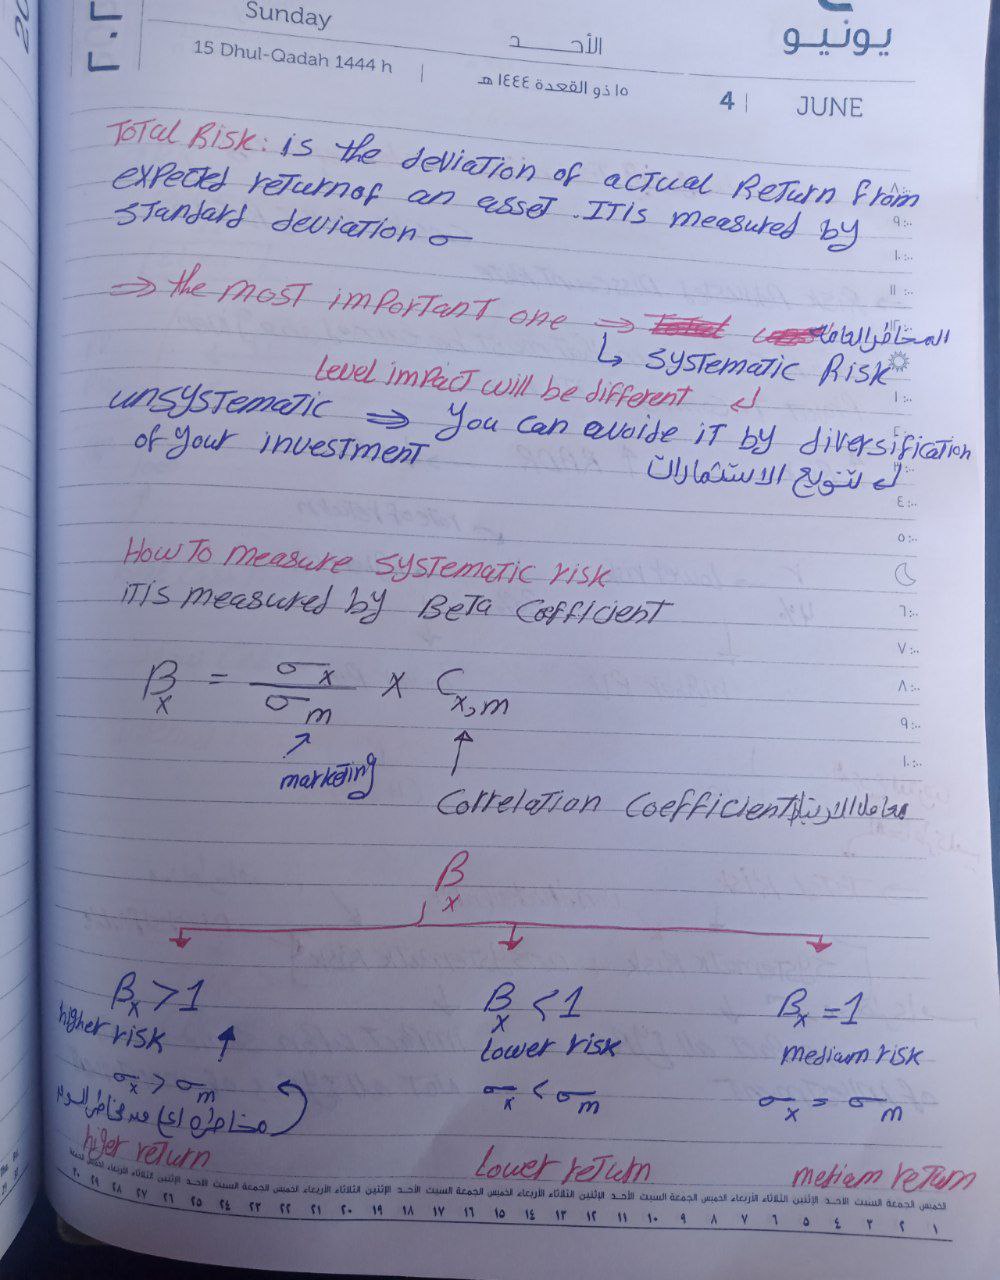 Sunday
الأحد
يونيو
15 Dhul-Qadah 1444 h
١٥ ذو القعدة ١٤٤٤ هـ
4 | JUNE
Total Risk: is the deviation of actual Return from
expected return of an asset. It is measured by
standard deviation σ
⇒ the most important one ⇒ المخاطر العامة
↳ Systematic Risk
Level impact will be different ↲
unsystematic ⇒ you can avoide it by diversification
of your investment
↲ لتنويع الاستثمارات
How to measure systematic risk
it is measured by Beta Coefficient
βx = σx / σm x Cx,m
marketing
Correlation Coefficient معامل الارتباط
βx
βx > 1
higher risk ↑
σx > σm
higer return
βx < 1
lower risk
σx < σm
Lower return
βx = 1
mediam risk
σx = σm
mediam return
الخميس الجمعة السبت الأحد الإثنين الثلاثاء الأربعاء الخميس الجمعة السبت الأحد الإثنين الثلاثاء الأربعاء الخميس الجمعة السبت الأحد الإثنين الثلاثاء الأربعاء الخميس الجمعة السبت الأحد الإثنين الثلاثاء الأربعاء الخميس الجمعة
١ ٢ ٣ ٤ ٥ ٦ ٧ ٨ ٩ ١٠ ١١ ١٢ ١٣ ١٤ ١٥ ١٦ ١٧ ١٨ ١٩ ٢٠ ٢١ ٢٢ ٢٣ ٢٤ ٢٥ ٢٦ ٢٧ ٢٨ ٢٩ ٣٠